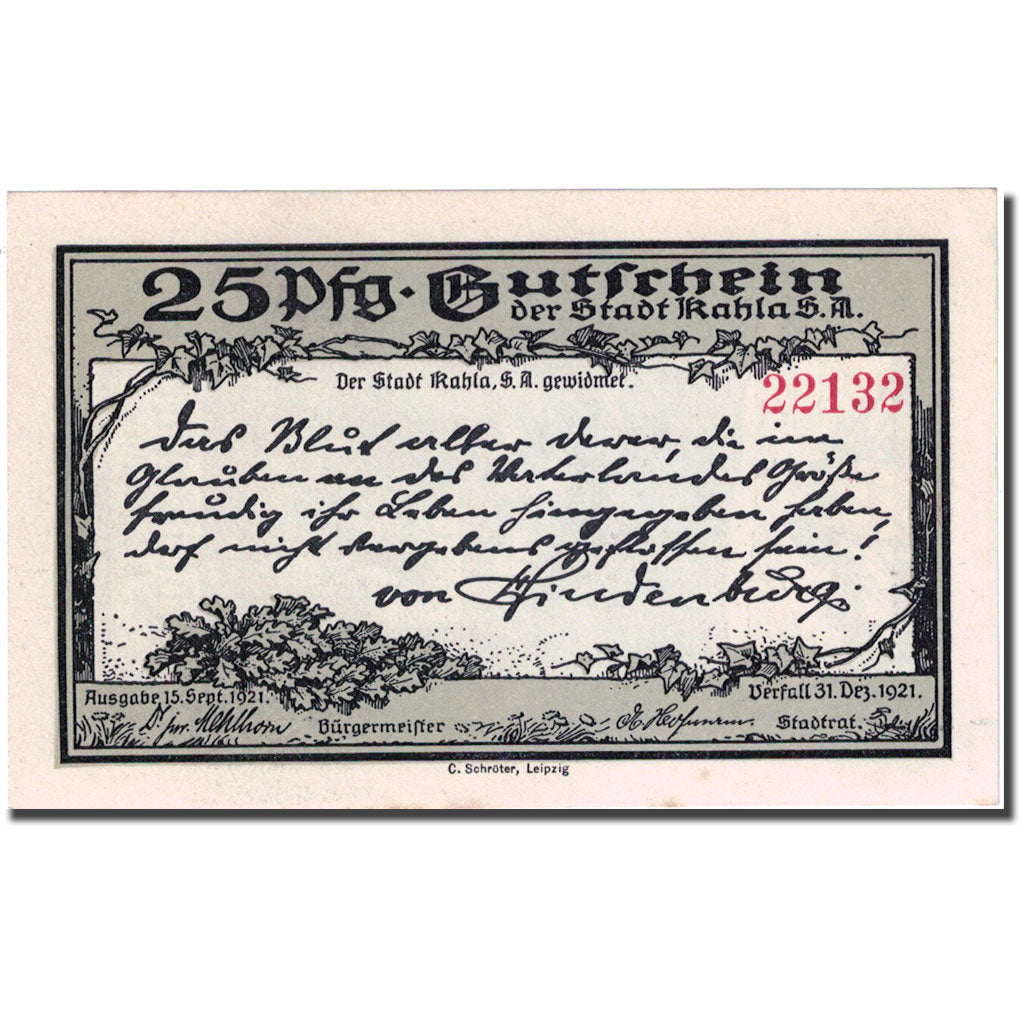 25 Pfg. Gutschein
der Stadt Kahla S. A.
Der Stadt Kahla, S. A. gewidmet.
22132
Das Blut aller derer, die im
Glauben an des Vaterlandes Größe
freudig ihr Leben hingegeben haben,
darf nicht vergebens geflossen sein!
von Hindenburg.
Ausgabe 15. Sept. 1921.
Verfall 31. Dez. 1921.
Dr. jur. Mehlhorn Bürgermeister
Stadtrat.
C. Schröter, Leipzig